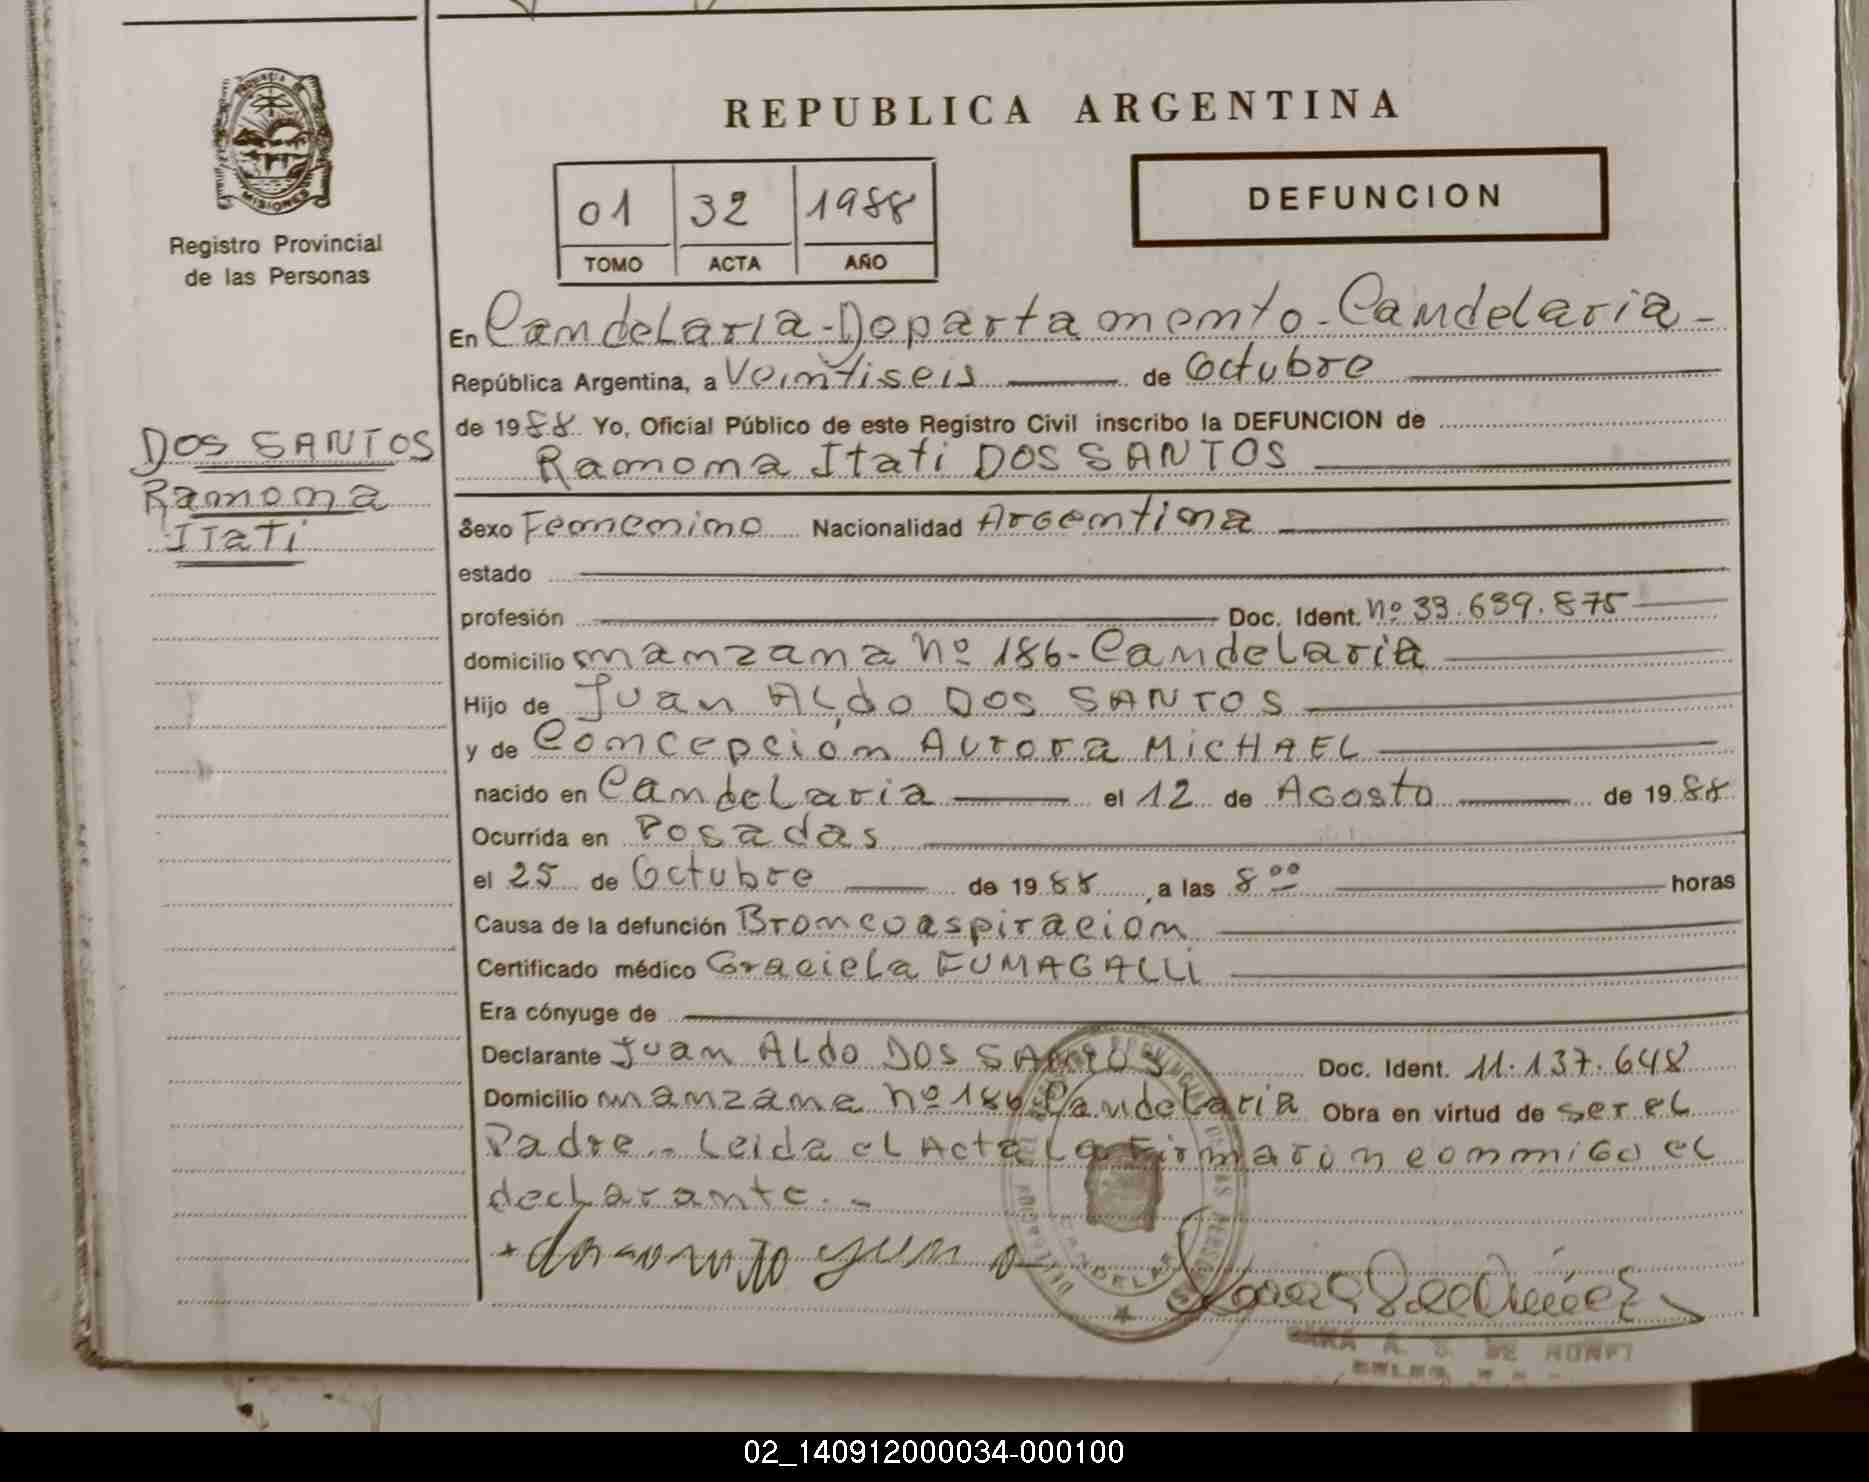 REPUBLICA ARGENTINA
PROVINCIA
MISIONES
Registro Provincial
de las Personas
01 32 1988
TOMO ACTA AÑO
DEFUNCION
En Candelaria-Departamento-Candelaria-
República Argentina, a Veintiseis de Octubre
de 1988 Yo, Oficial Público de este Registro Civil inscribo la DEFUNCION de
Ramona Itati DOS SANTOS
DOS SANTOS
Ramona
Itati
Sexo Femenino Nacionalidad Argentina
estado
profesión Doc. Ident. nº 33.639.875
domicilio manzana nº 186-Candelaria
Hijo de Juan Aldo DOS SANTOS
y de Concepción Aurora MICHAEL
nacido en Candelaria el 12 de Agosto de 1988
Ocurrida en Posadas
el 25 de Octubre de 1988, a las 8 ºº horas
Causa de la defunción Broncoaspiracion
Certificado médico Graciela FUMAGALLI
Era cónyuge de
Declarante Juan Aldo DOS SANTOS Doc. Ident. 11.137.648
Domicilio manzana nº 186 Candelaria Obra en virtud de ser el
Padre.- Leida el Acta La Firmaron conmigo el
declarante.-
CANDELARIA
02_140912000034-000100